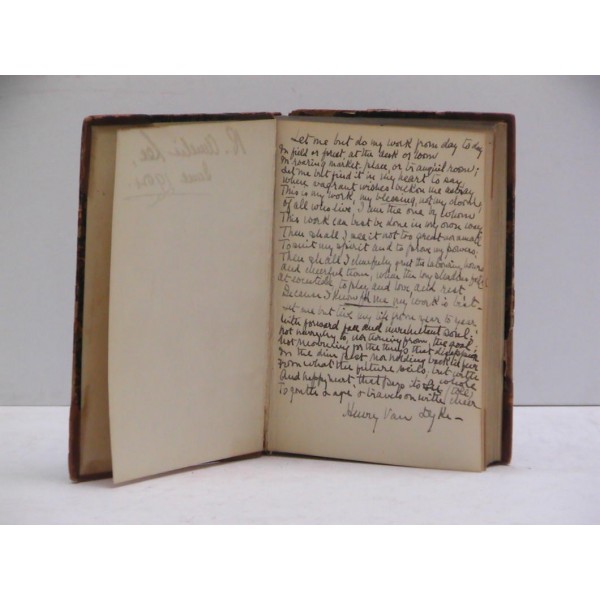 Let me but do my work from day to day
In field or forest, at the desk or loom
In roaring market place, or tranquil room;
Let me but find it in my heart to say
When vagrant wishes beckon me astray
This is my work, my blessing, not my doom,
Of all who live, I am the one by whom
This work can best be done in my own way
Then shall I see it not too great nor small
To suit my spirit and to prove my powers;
Then shall I cheerfully greet the laboring hours
And cheerful turn, when the long shadows fall
At eventide, to play and love and rest
Because I know for me my work is best.
Let me but live my life from year to year
With forward face and unreluctant soul;
Not hurrying to, nor turning from, the goal;
Not mourning for the things that disappear
In the dim past nor holding back in fear
From what the future veils, but with a whole
And happy heart that pays its toll
To youth & age & travels on with cheer
Henry Van Dyke –